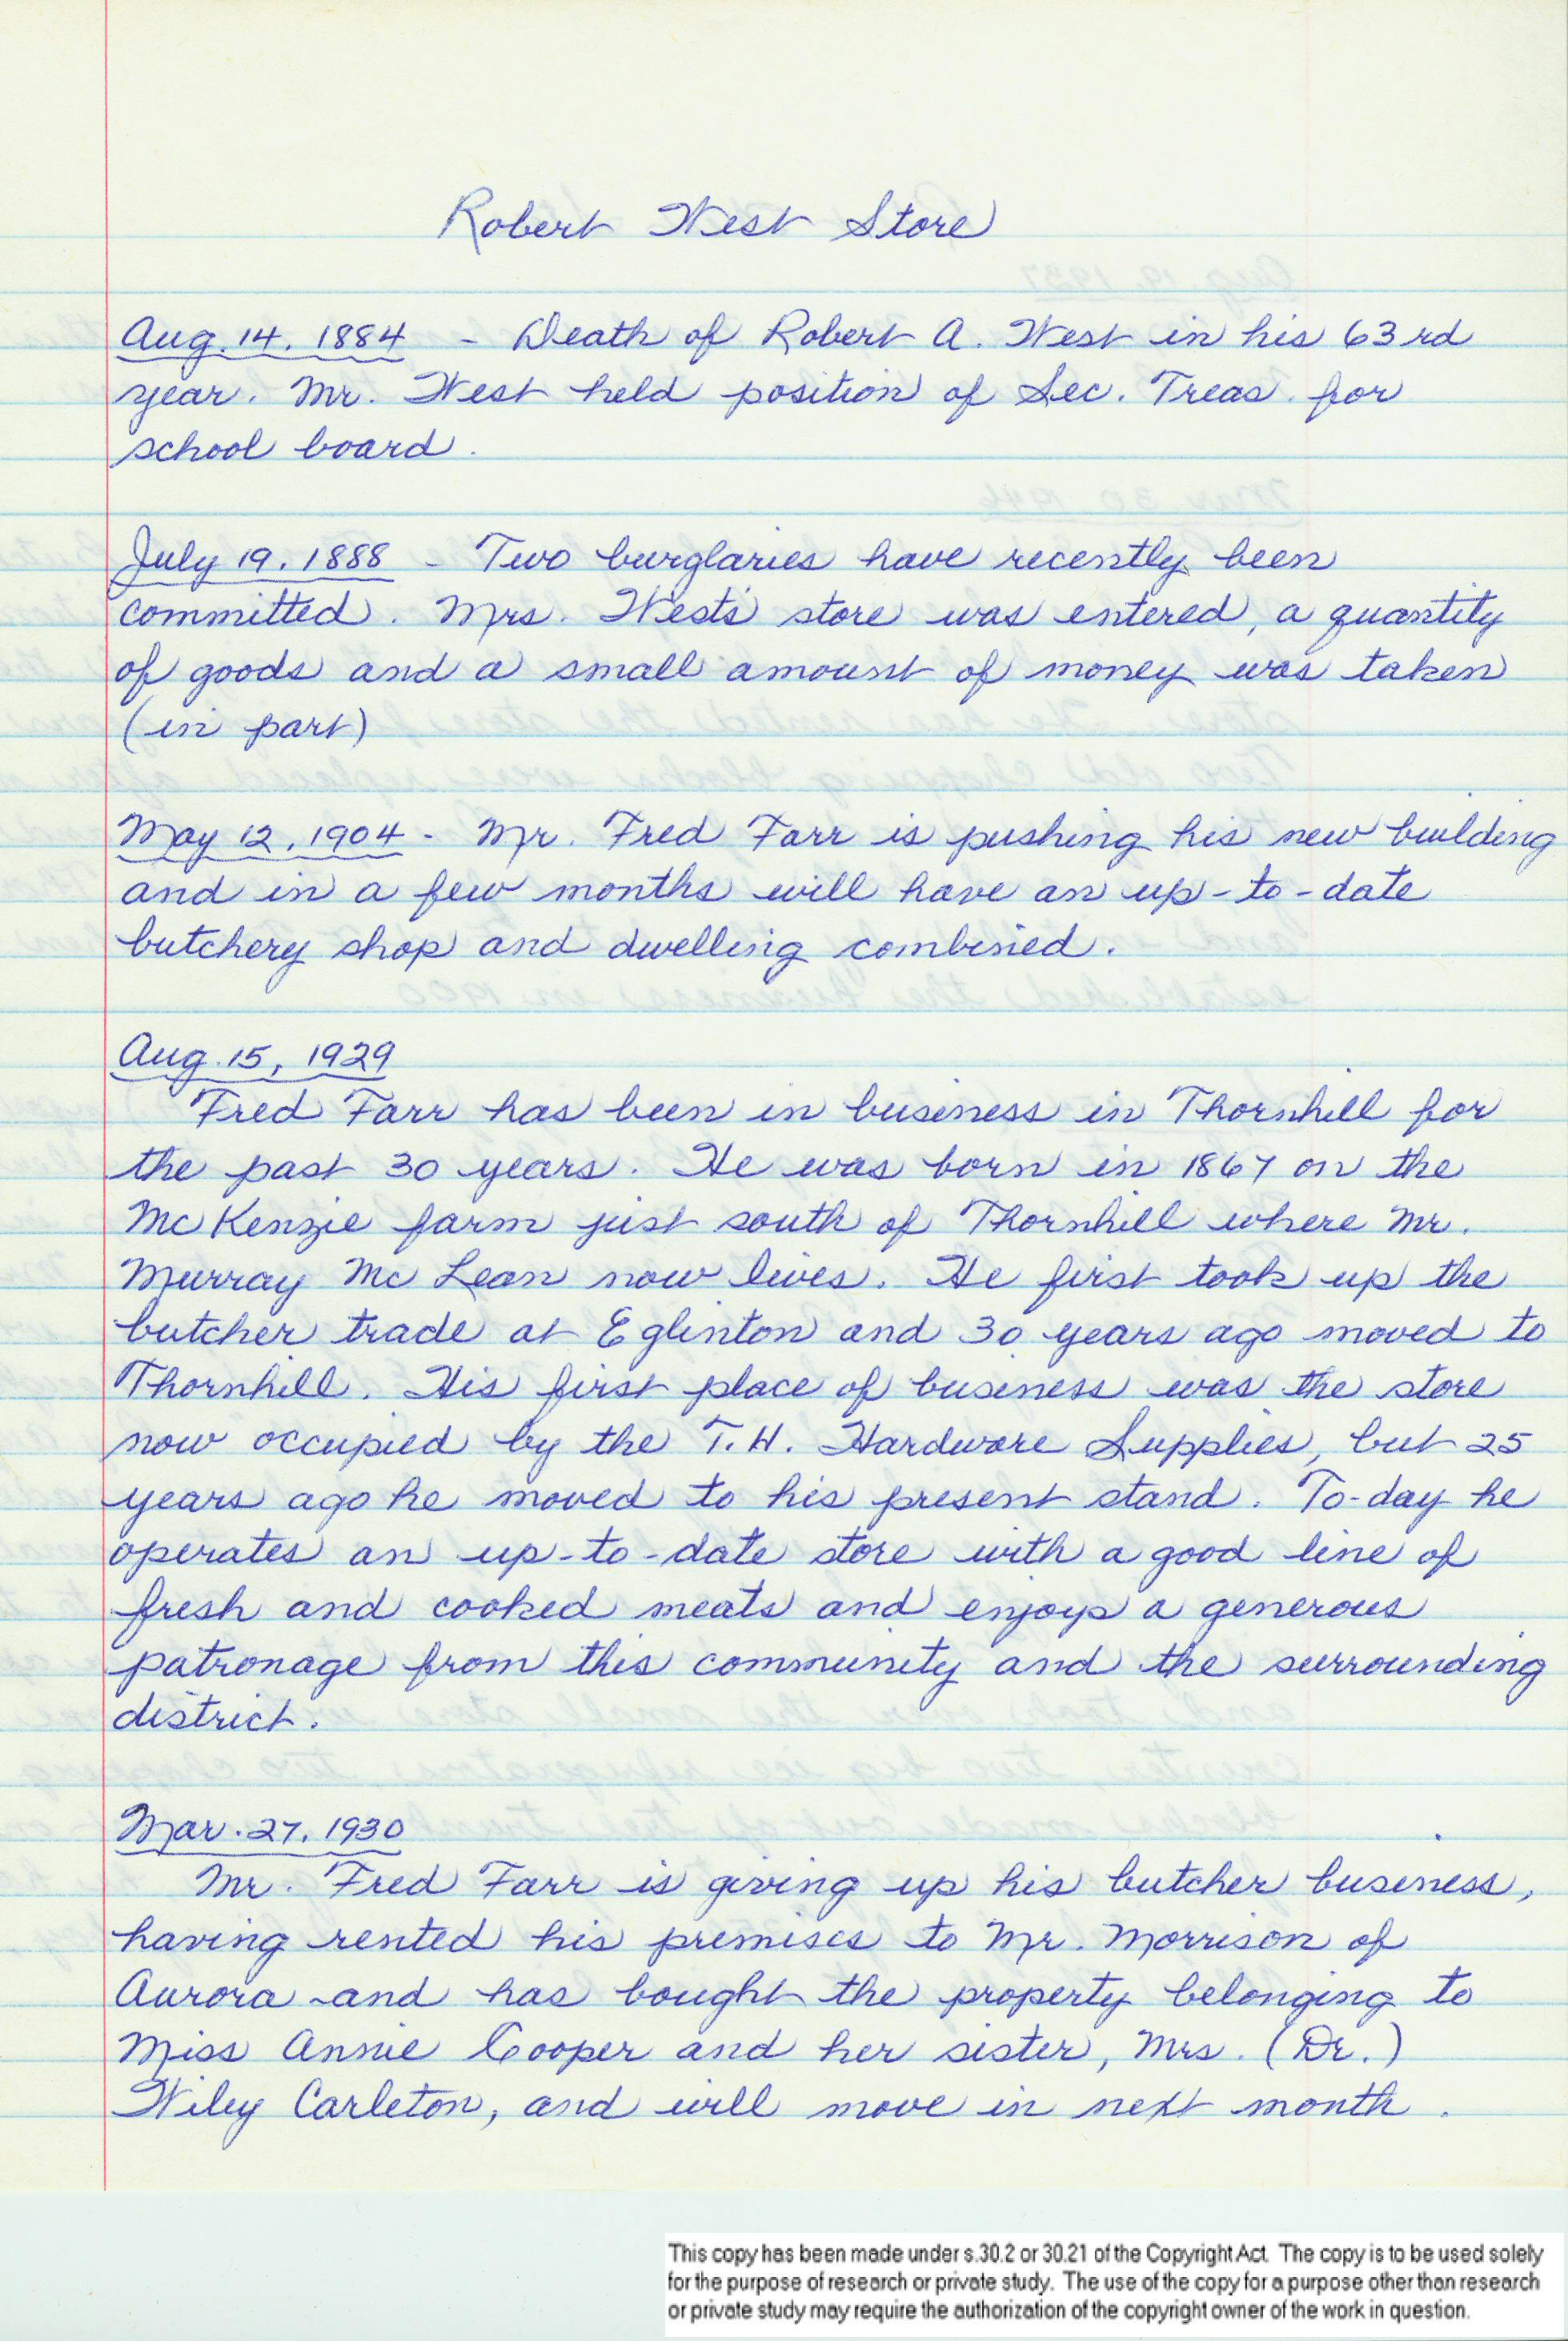 Robert West Store
Aug. 14, 1884 - Death of Robert A. West in his 63rd
year. Mr. West held position of Sec. Treas. for
school board.
July 19, 1888 - Two burglaries have recently been
committed. Mrs. West's store was entered, a quantity
of goods and a small amount of money was taken
(in part)
May 12, 1904 - Mr. Fred Farr is pushing his new building
and in a few months will have an up-to-date
butchery shop and dwelling combined.
Aug. 15, 1929
Fred Farr has been in business in Thornhill for
the past 30 years. He was born in 1867 on the
McKenzie farm just south of Thornhill where Mr.
Murray McLean now lives. He first took up the
butcher trade at Eglinton and 30 years ago moved to
Thornhill. His first place of business was the store
now occupied by the T.H. Hardware Supplies, but 25
years ago he moved to his present stand. To-day he
operates an up-to-date store with a good line of
fresh and cooked meats and enjoys a generous
patronage from this community and the surrounding
district.
Mar. 27, 1930
Mr. Fred Farr is giving up his butcher business,
having rented his premises to Mr. Morrison of
Aurora and has bought the property belonging to
Miss Annie Cooper and her sister, Mrs. (Dr.)
Wiley Carleton, and will move in next month.
This copy has been made under s.30.2 or 30.21 of the Copyright Act. The copy is to be used solely
for the purpose of research or private study. The use of the copy for a purpose other than research
or private study may require the authorization of the copyright owner of the work in question.